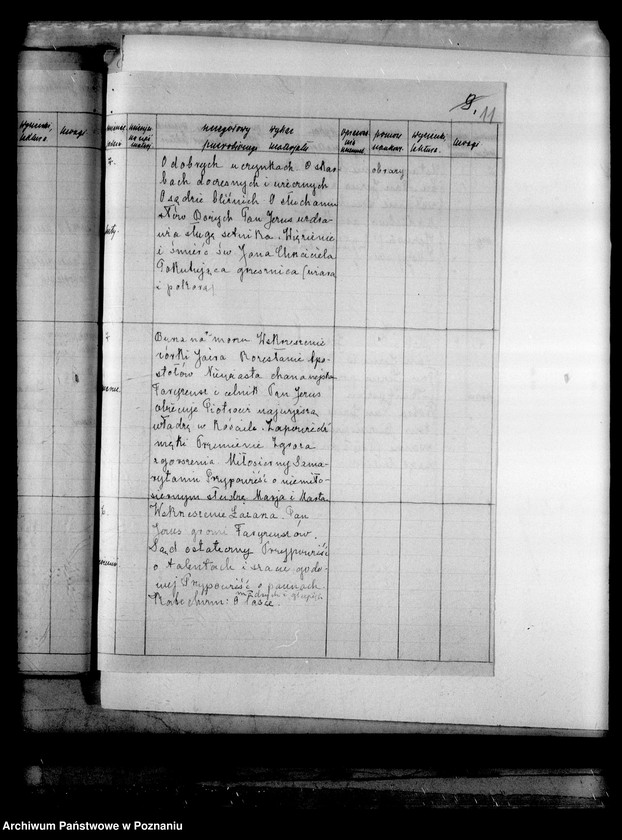 9. 11
szczegółowy wykaz
przerobionego materjału
pomoce
naukow.
Wycieczki,
lektura.
Uwagi
Wycieczki,
lektura.
Uwagi
O dobrych uczynkach. O skar-
bach doczesnych i wiecznych
O sądzie bliźnich O słuchaniu
słów Bożych Pan Jezus uzdra-
wia sługę setnika. Więzienie
i śmierć św. Jana Chrzciciela
Pokutująca grzesznica (wiara
i pokora)
obrazy
Burza na morzu Wskrzeszenie
córki Jaira Rozesłanie Apo-
stołów Niewiasta chananejska
Faryzeusz i celnik Pan Jezus
obiecuje Piotrowi najwyższą
władzę w Kościele. Zapowiedź
męki Przemienienie Zgroza
zgorszenia Miłosierny Sama-
rytanin Przypowieść o niemiło-
siernym słudze Marja i Marta
Wskrzeszenie Łazarza. Pan
Jezus gromi Faryzeuszów.
Sąd ostateczny Przypowieść
o talentach i szacie godo-
wej Przypowieść o pannach
mądrych i głupich
Katechizm: O łasce.
Archiwum Państwowe w Poznaniu